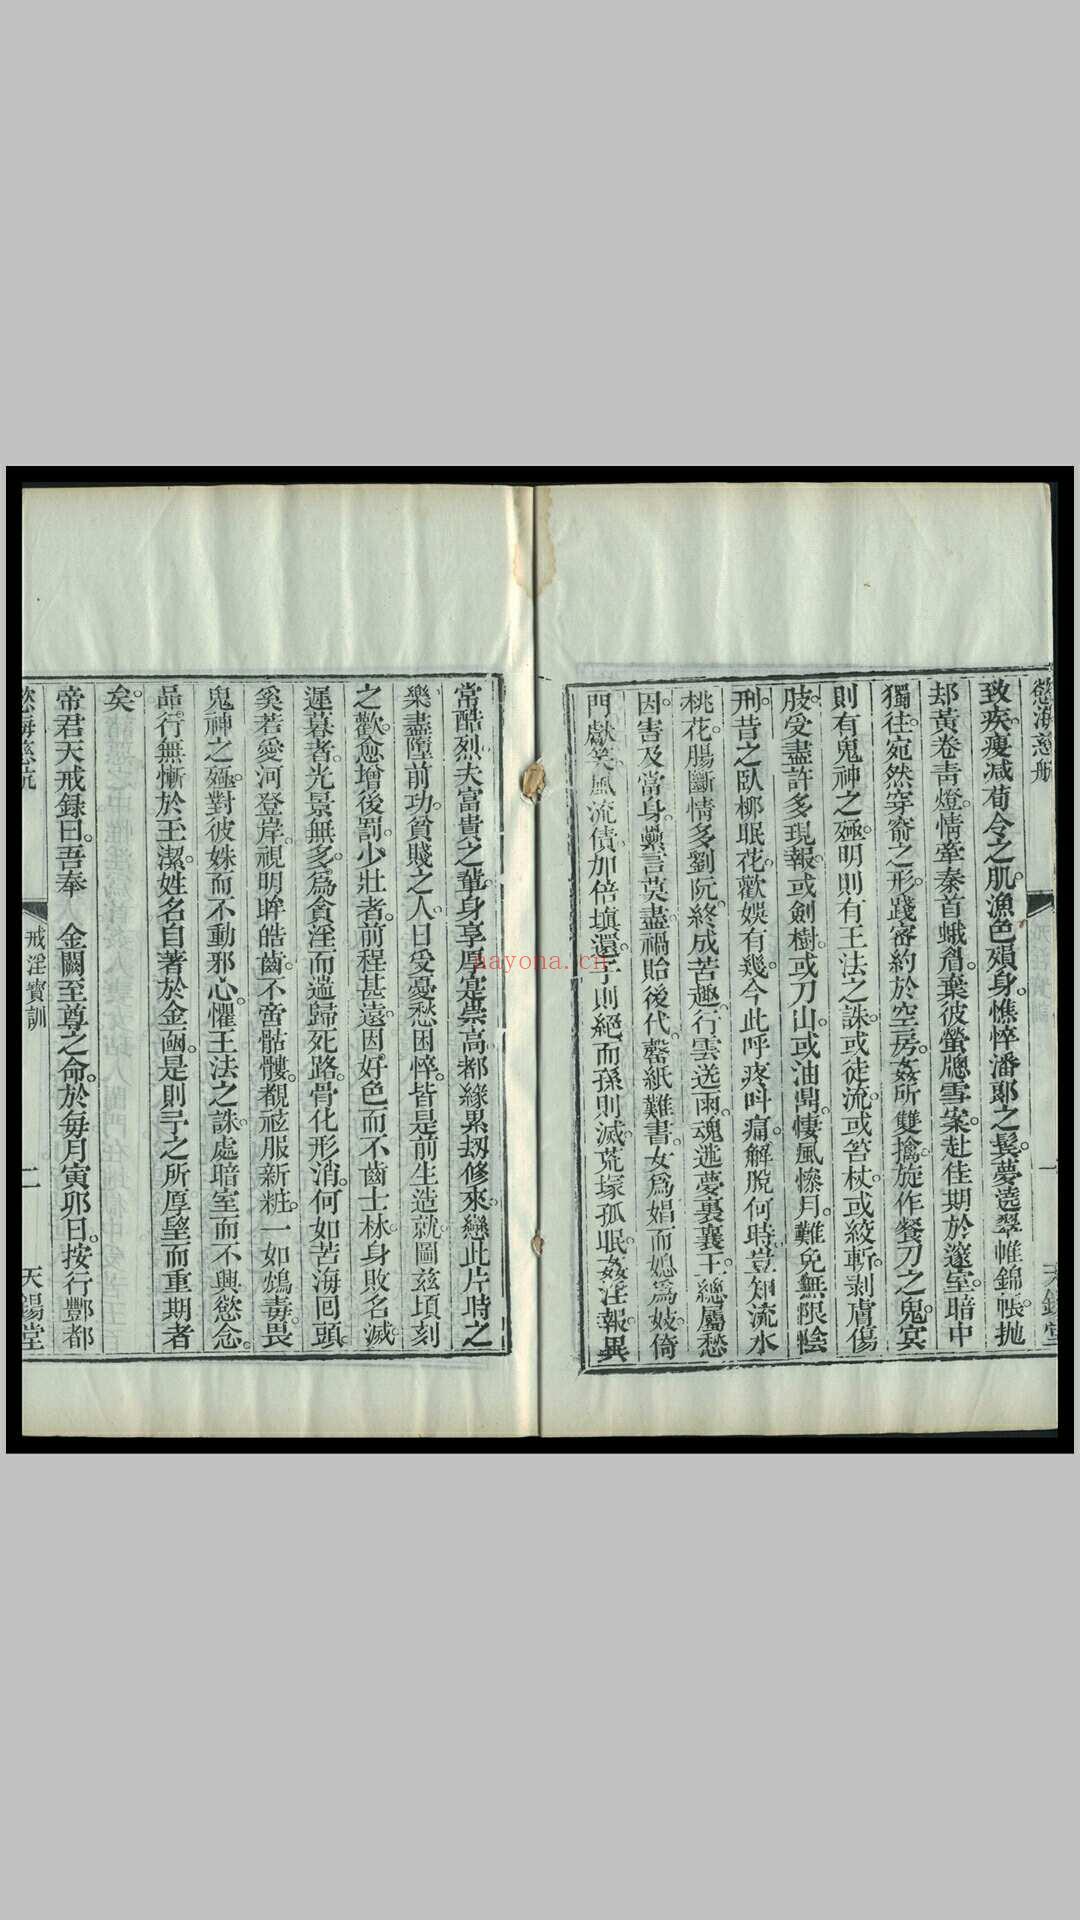 慾海慈航
一
天錫堂
致疾瘦減荀令之肌漁色殞身憔悴潘郎之鬂夢遶翠帷錦帳拋
却黃卷靑燈情牽秦首蛾眉棄彼螢牕雪案赴佳期於邃室暗中
獨往宛然穿窬之形踐密約於空房姦所雙擒旋作餐刀之鬼冥
則有鬼神之殛明則有王法之誅或徒流或笞杖或絞斬剥膚傷
肢受盡許多現報或劍樹或刀山或油鼎悽風慘月難免無限陰
刑昔之臥柳眠花歡娛有幾今此呼疼呌痛解脫何時豈知流水
桃花腸斷情多劉阮終成苦趣行雲送雨魂迷夢裏襄王總屬愁
因害及當身櫱言莫盡禍貽後代罄紙難書女爲娼而媳爲妓倚
門獻笑風流債加倍塡還子則絕而孫則滅荒塚孤眠姦淫報異
常酷烈夫富貴之輩身享厚寔祟高都緣累刼修來戀此片時之
樂盡墮前功貧賤之人日受憂愁困悴皆是前生造就圖兹頃刻
之歡愈增後罰少壯者前程甚遠因好色而不齒士林身敗名滅
遲暮者光景無多爲貪淫而遄歸死路骨化形消何如苦海囘頭
奚若愛河登岸視明眸皓齒不啻骷髏覩袨服新粧一如鴆毒畏
鬼神之殛對彼姝而不動邪心懼王法之誅處暗室而不興慾念
品行無慚於玉潔姓名自著於金凾是則予之所厚望而重期者
矣
帝君天戒録曰吾奉 金闕至尊之命於每月寅卯日按行酆都
慾海慈航
戒淫寶訓
二
天錫堂
nayona.cn